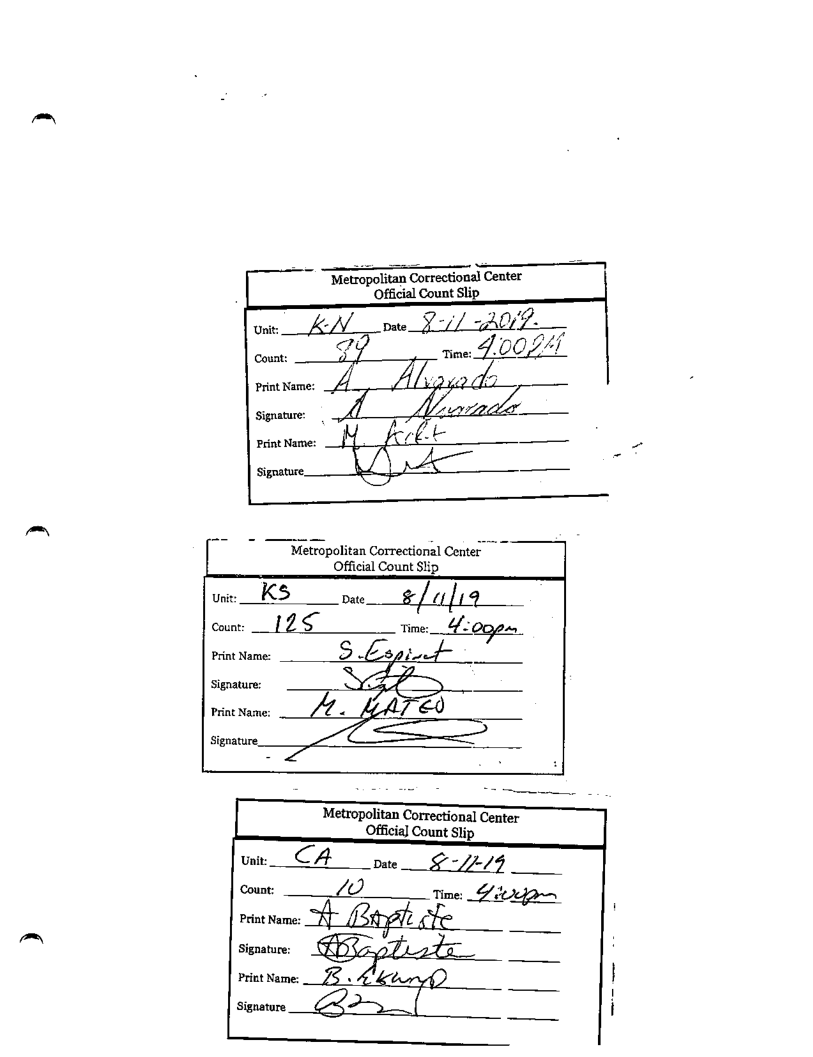 Metropolitan Correctional Center
Official Count Slip
Unit: K-N Date 8-11-2019.
Count: 89 Time: 4:00PM
Print Name: A Alvarado
Signature: A Alvarado
Print Name: M.
Signature
Metropolitan Correctional Center
Official Count Slip
Unit: KS Date 8/11/19
Count: 125 Time: 4:00pm
Print Name: S. Espinet
Signature:
Print Name: M. MATEO
Signature
Metropolitan Correctional Center
Official Count Slip
Unit: CA Date 8-11-19
Count: 10 Time: 4:00pm
Print Name: A Baptiste
Signature: A Baptiste
Print Name: B.
Signature